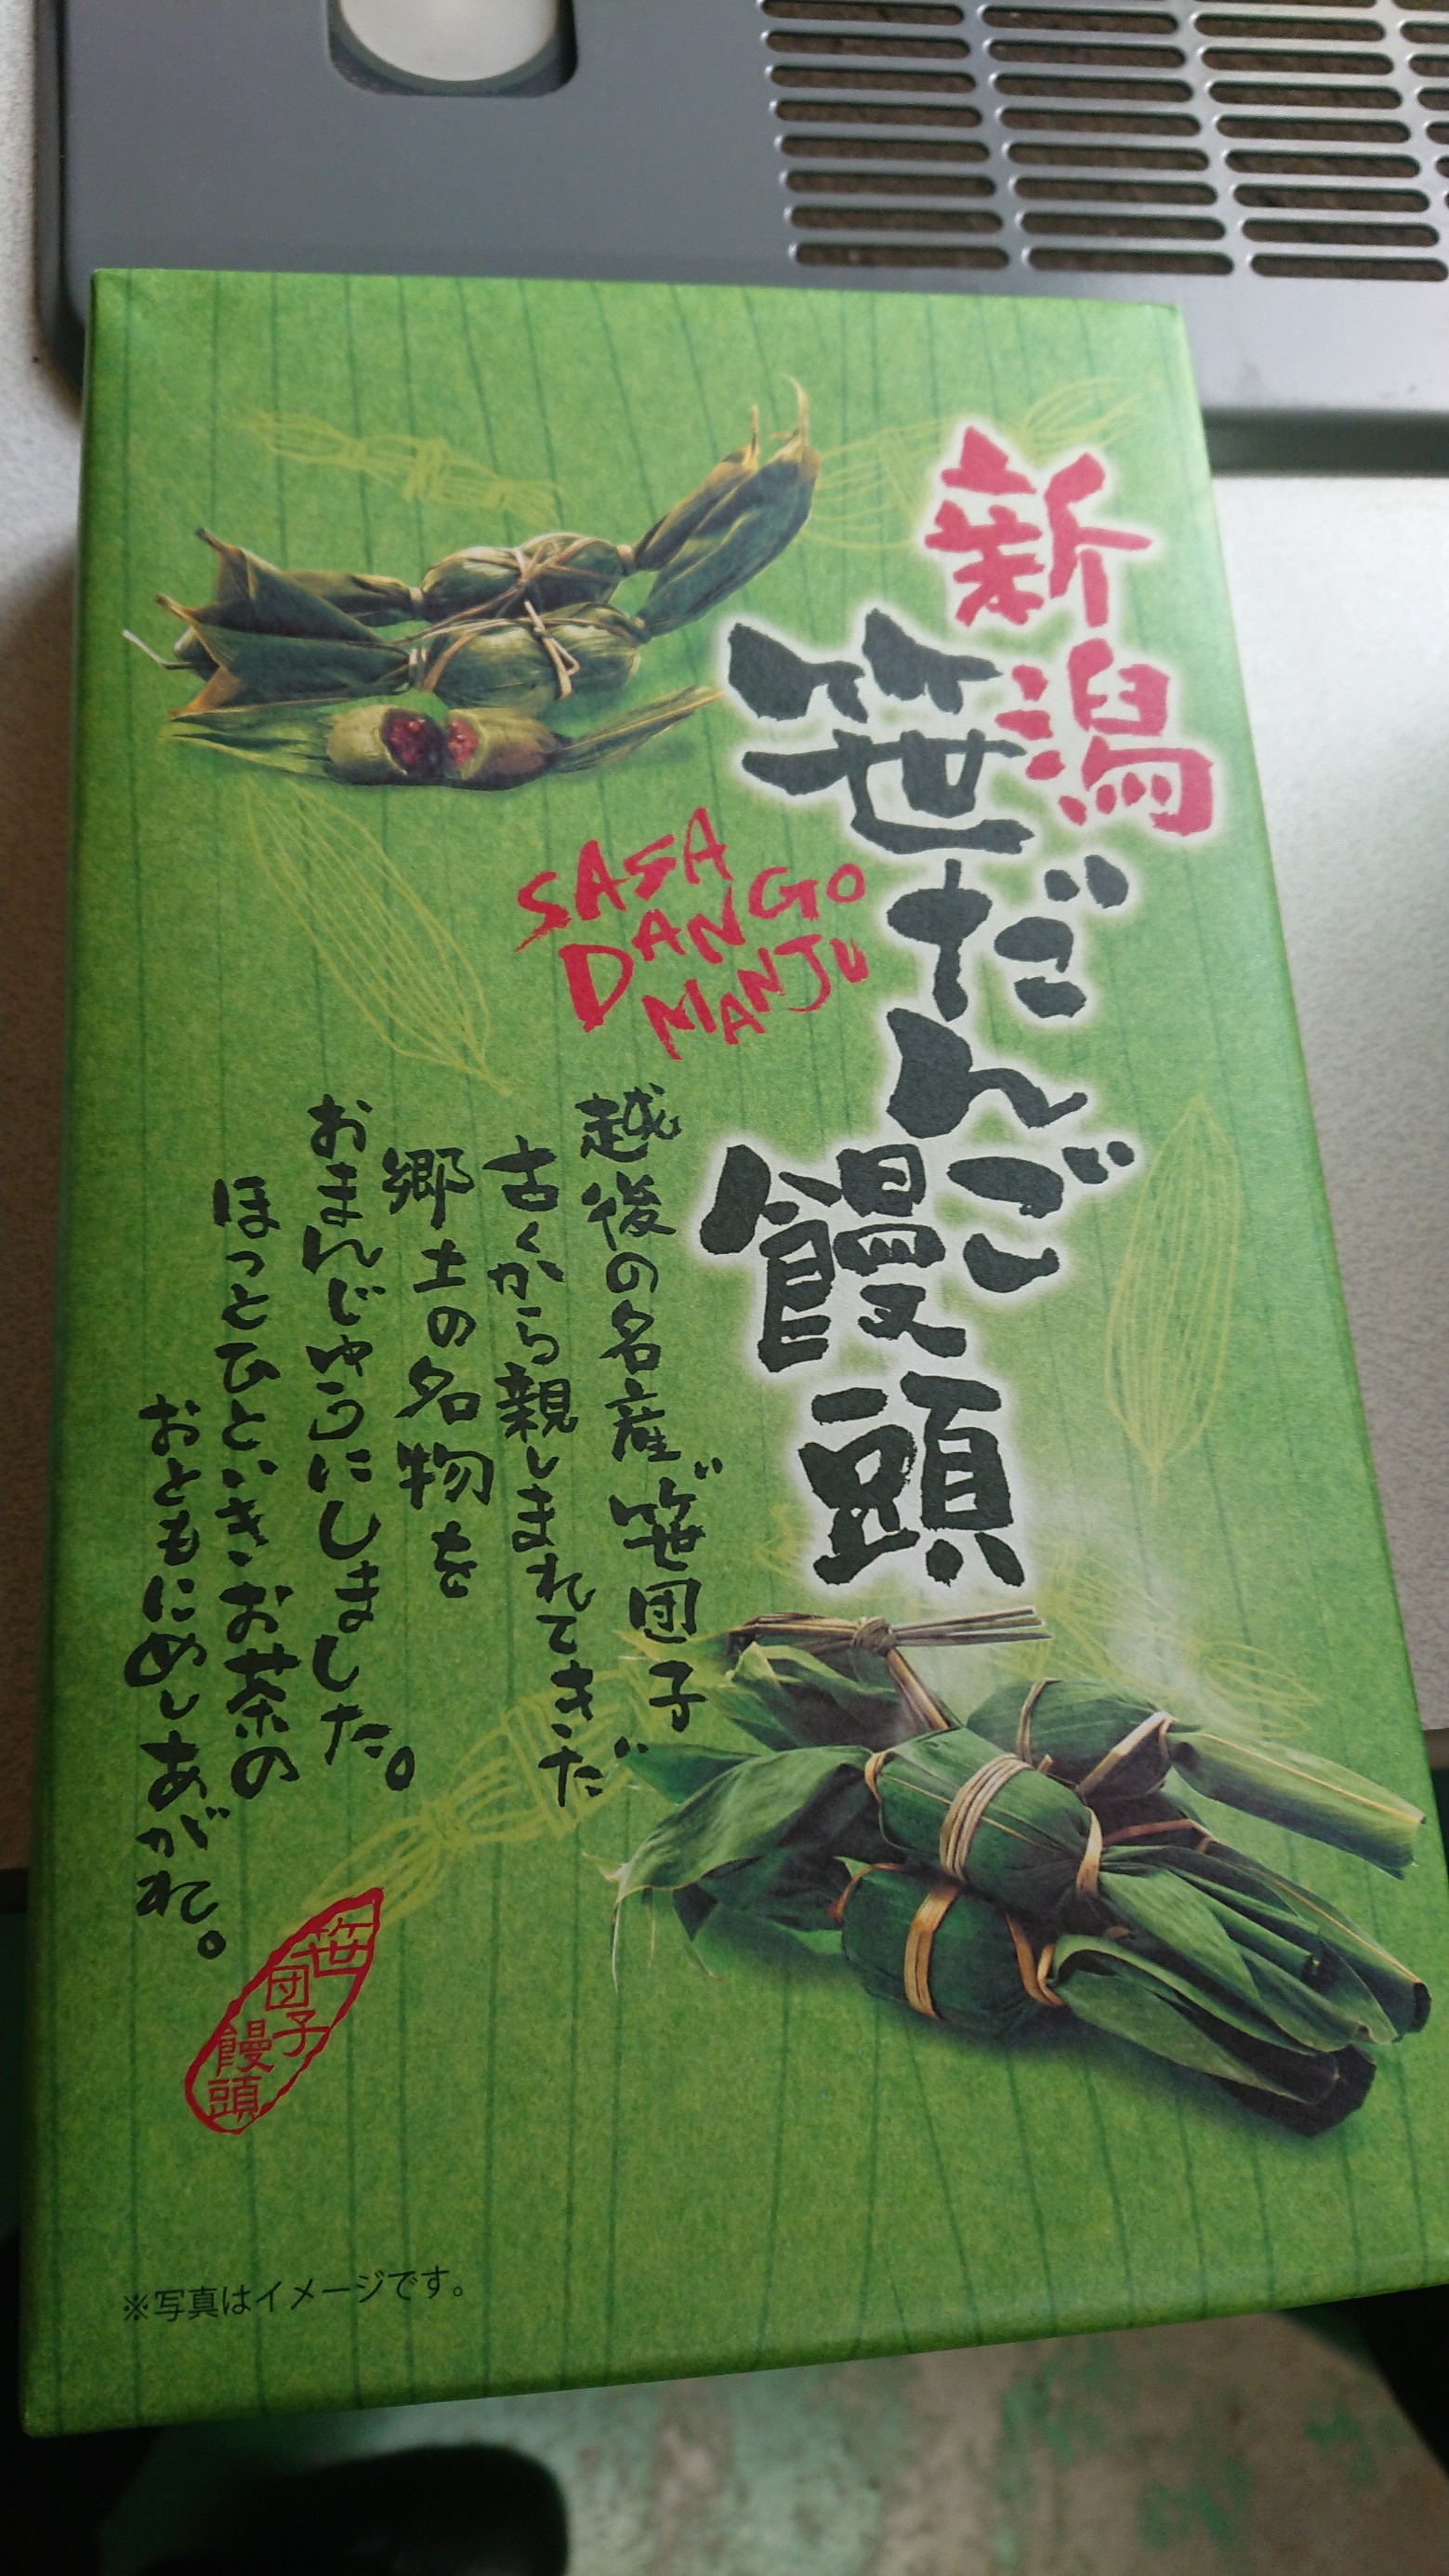 新潟
笹だんご
饅頭
SASA
DANGO
MANJU
越後の名産“笹団子”
古くから親しまれてきた
郷土の名物を
おまんじゅうにしました。
ほっとひといきお茶の
おともにめしあがれ。
笹団子
饅頭
※写真はイメージです。